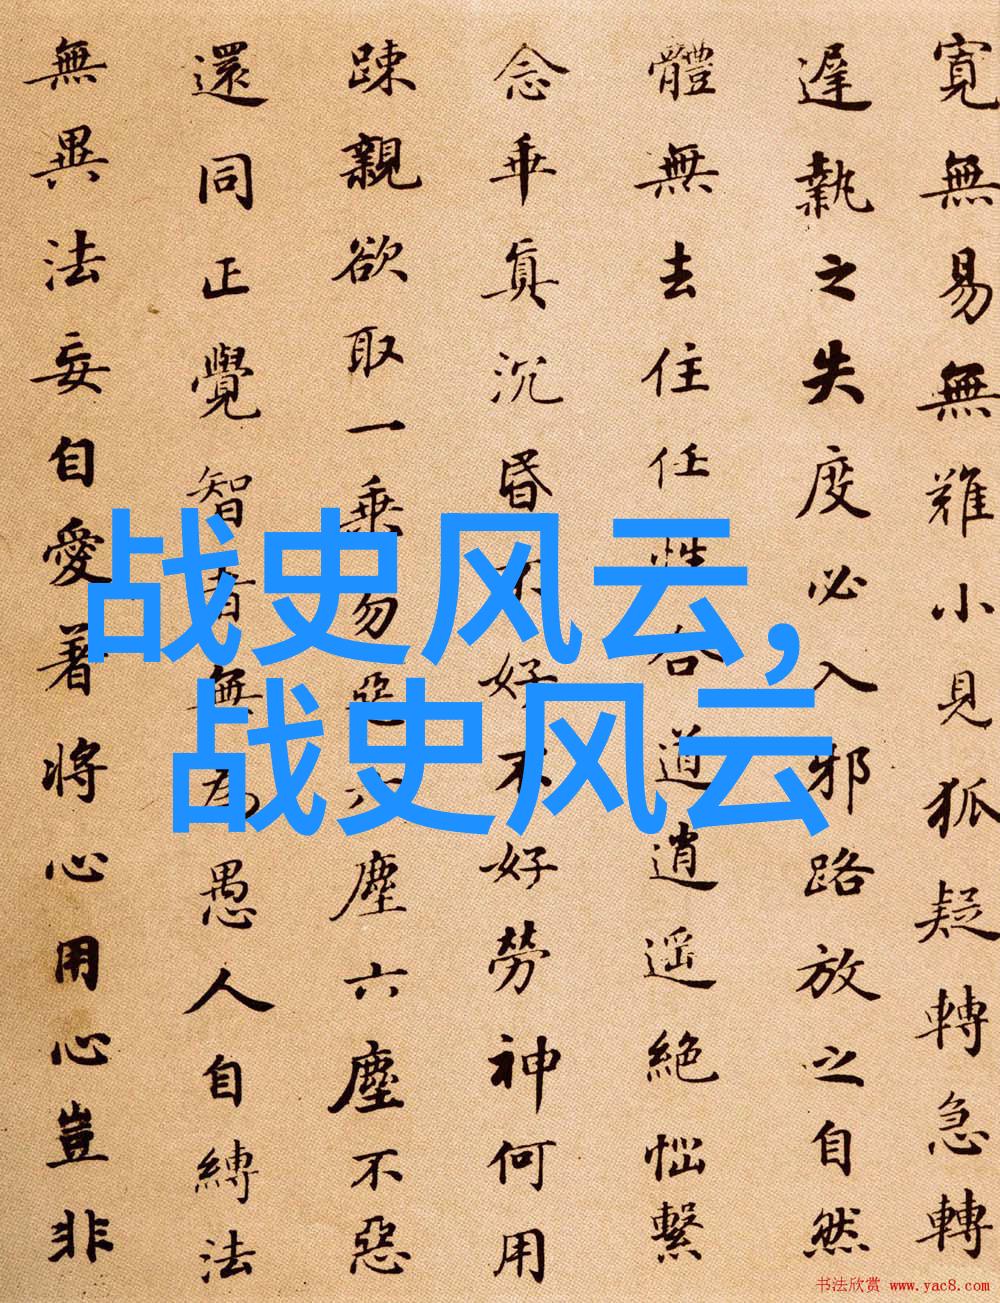 寬無易無難小見狐疑轉急轉
遲執之失度必入邪路放之自然
體無去住任性合道逍遥絶惱繫
念乖真沉昏不好不好勞神何用
踈親欲取一乗勿惡六塵六塵不惡
還同正覺智者無為愚人自縛法
無異法妄自愛著將心用心豈非
战史风云,
战史风云
书法欣赏 www.yac8.com